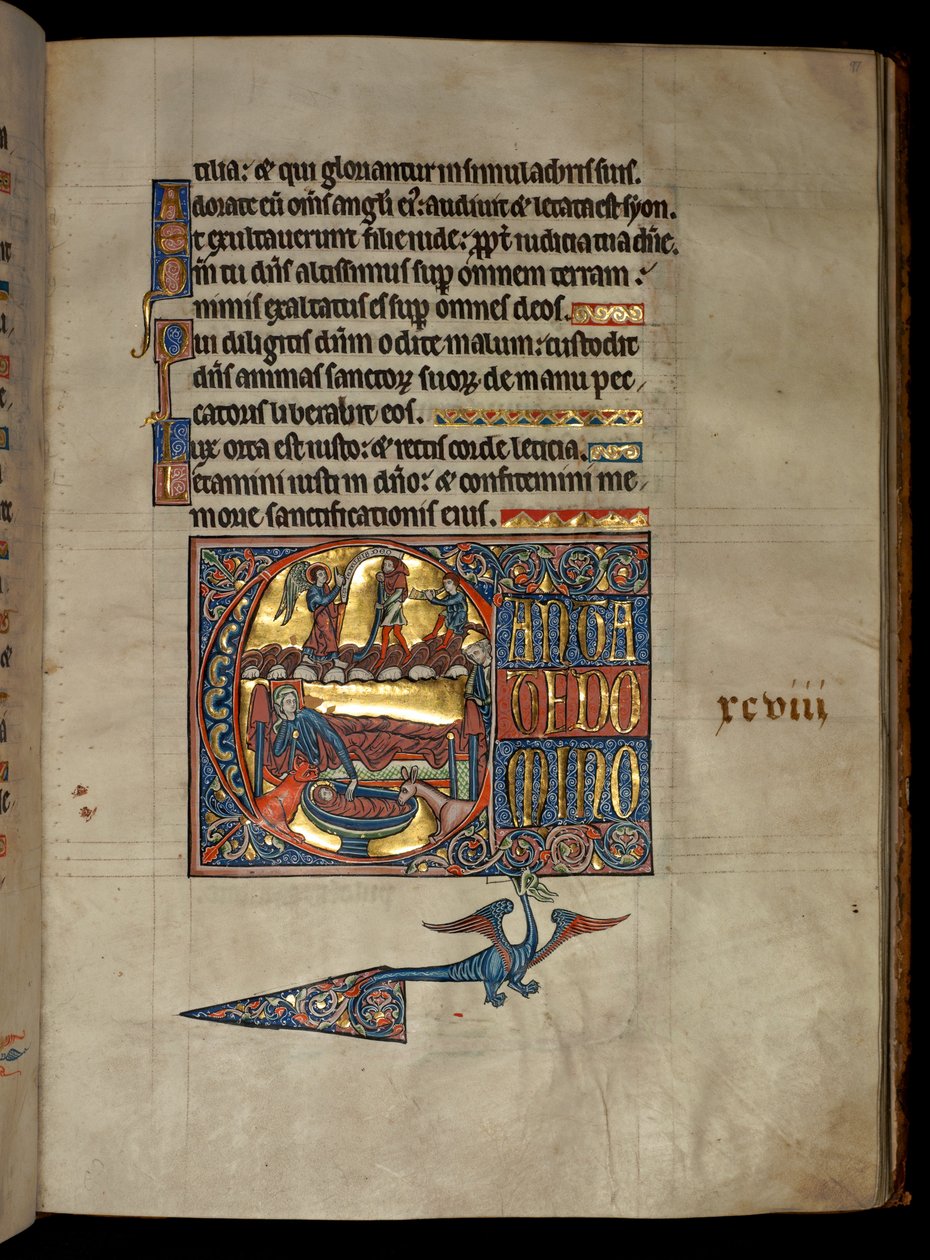 97
tilia: & qui gloriantur in simulachris suis.
Adorate eū om̄s angłi eiꝰ: audiuit & letata est syon.
Et exultauerunt filie iude: ꝓpt̄ iudicia tua dn̄e.
Qm̄ tu dn̄s altissimus suꝑ omnem terram:
nimis exaltatus es suꝑ omnes deos.
Qui diligitis dn̄m odite malum: custodit
dn̄s animas sanctoꝝ suoꝝ. de manu pec/
catoris liberabit eos.
Lux orta est iusto: & rectis corde leticia.
Letamini iusti in dn̄o: & confitemini me/
morie sanctificationis eius.
CANTA
TEDO
MINO
xcviiij